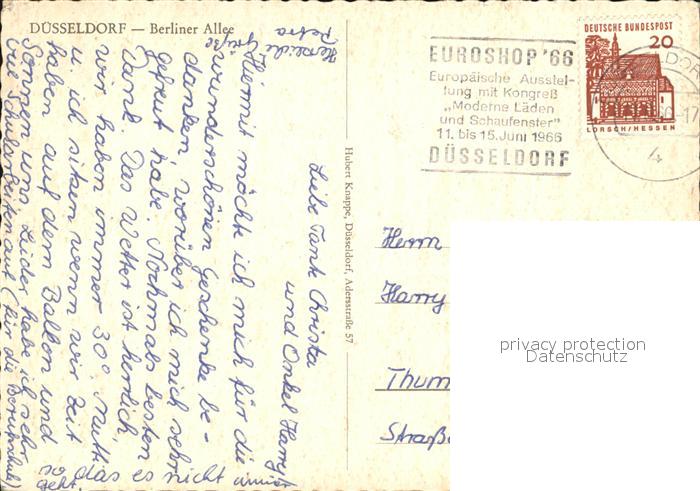 DÜSSELDORF — Berliner Allee
EUROSHOP '66
Europäische Ausstel-
lung mit Kongreß
„Moderne Läden
und Schaufenster"
11. bis 15. Juni 1966
DÜSSELDORF
DEUTSCHE BUNDESPOST
20
LORSCH/HESSEN
4
Hubert Knappe, Düsseldorf, Adersstraße 57
Liebe Tante Christa
und Onkel Harry!
Hiermit möchte ich mich für die
wunderschönen Geschenke be-
danken, worüber ich mich sehr
gefreut habe. Nochmals besten
Dank. Das Wetter ist herrlich,
wir haben immer 30°. Mutti
u. ich sitzen wenn wir Zeit
haben auf dem Balkon und
sonnen uns. Leider habe ich sehr
viel
(für die Berufschule)
so das es nicht immer
geht.
Herzliche Grüße
Petra
Herrn
Harry
Thum
Straße
privacy protection
Datenschutz